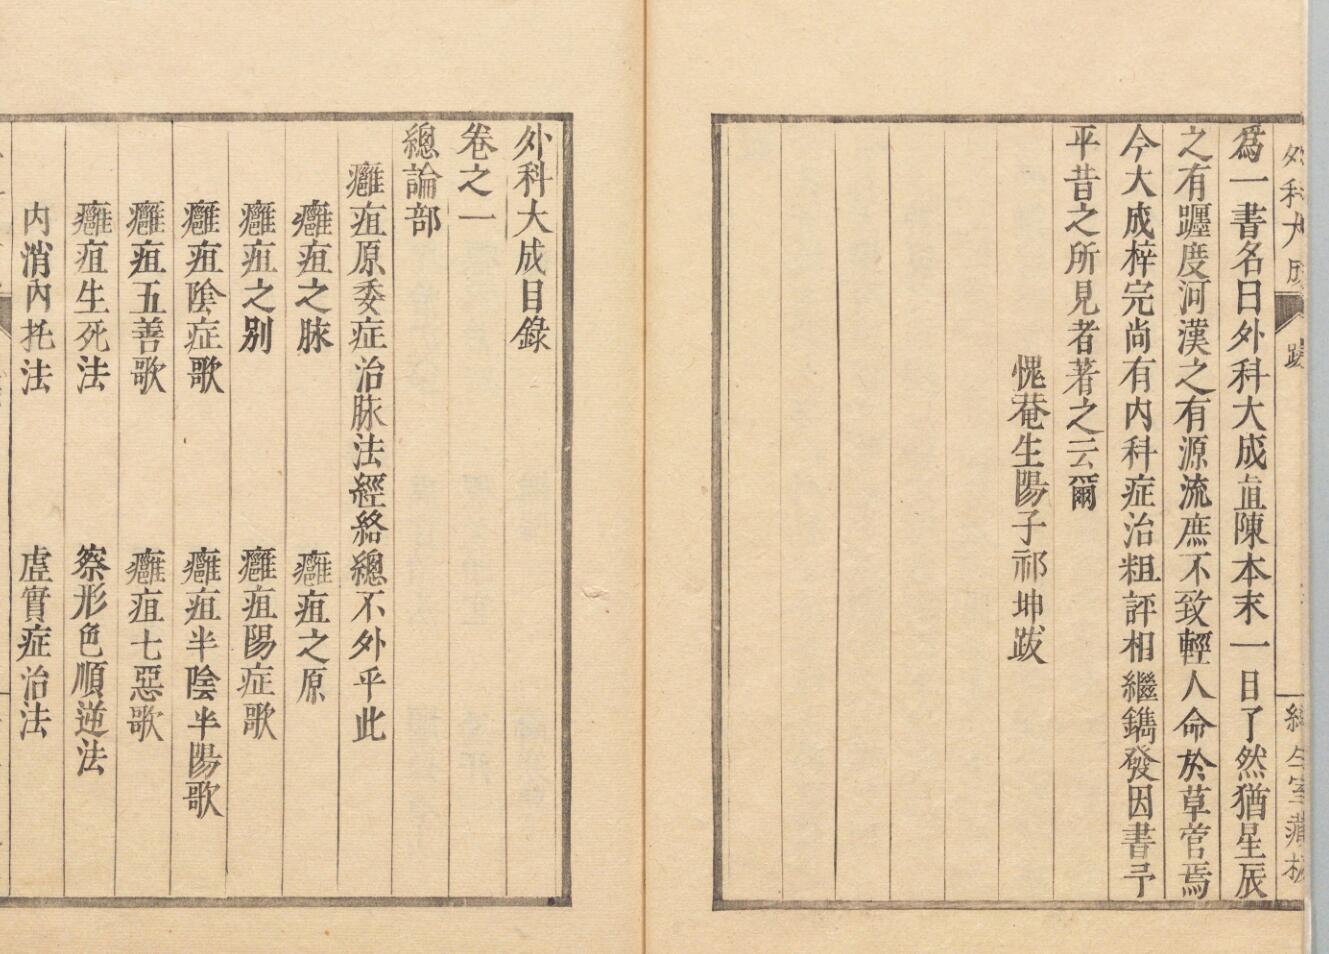 外科大成 跋
爲一書名曰外科大成直陳本末一目了然猶星辰
之有躔度河漢之有源流庶不致輕人命於草菅焉
今大成梓完尚有內科症治粗評相繼鐫發因書予
平昔之所見者著之云爾
愧菴生陽子祁坤跋
外科大成目錄
卷之一
總論部
癰疽原委症治脉法經絡總不外乎此
癰疽之脉 癰疽之原
癰疽之別 癰疽陽症歌
癰疽陰症歌 癰疽半陰半陽歌
癰疽五善歌 癰疽七惡歌
癰疽生死法 察形色順逆法
內消內托法 虛實症治法